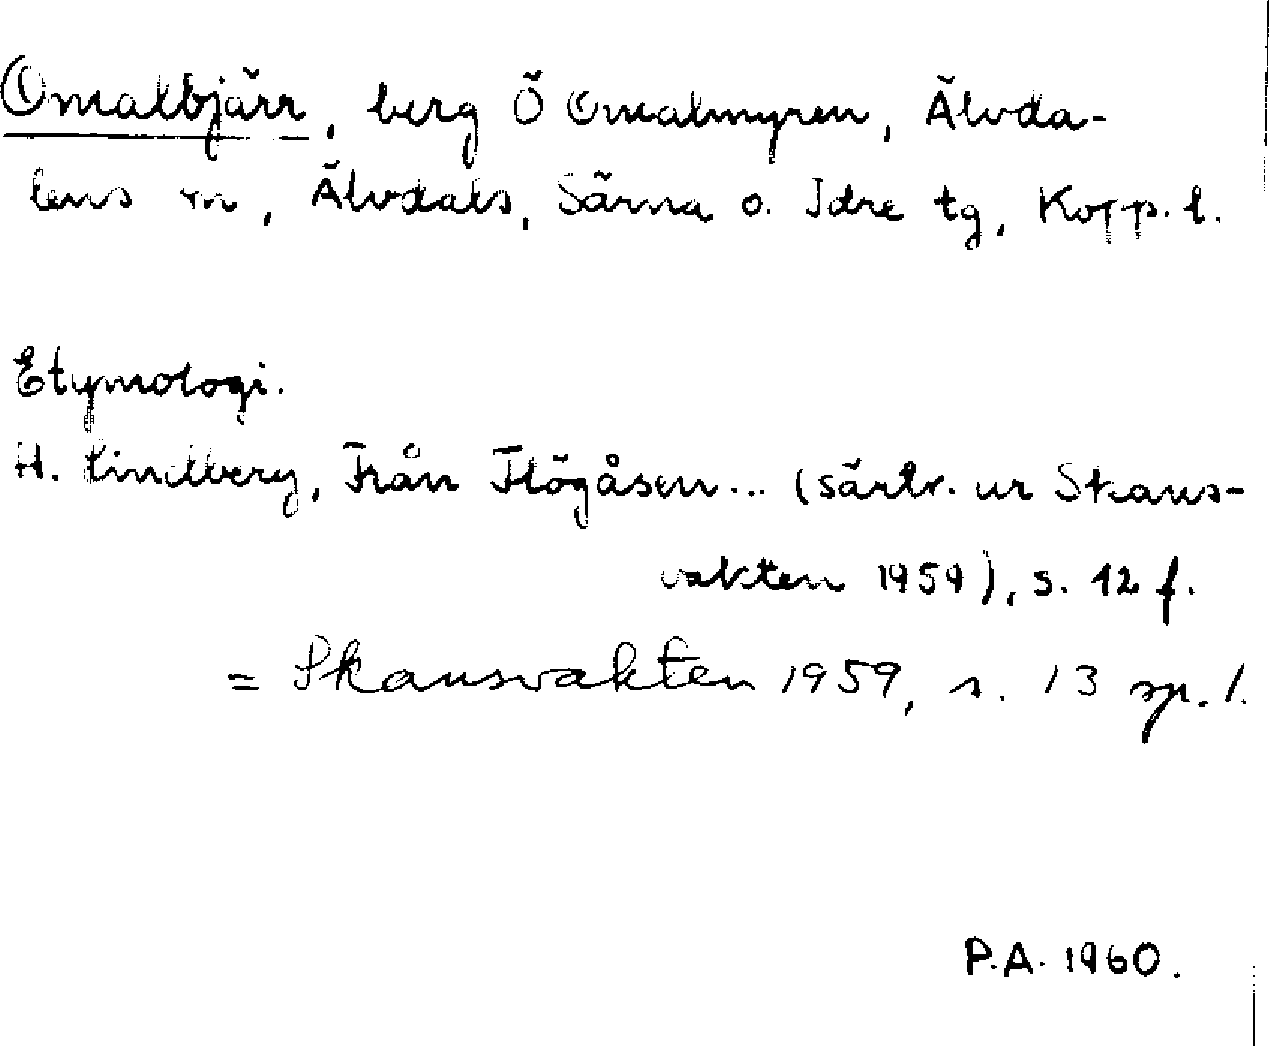 Omalbjärr, berg Ö Omalmyren, Älvda-
lens sn, Älvdals, Särna o. Idre tg, Kopp. l.
Etymologi.
H. Lindberg, Från Högåsen... (särtr. ur Skans-
vakten 1959), s. 12 f.
= Skansvakten 1959, s. 13 sp. 1.
P.A. 1960.